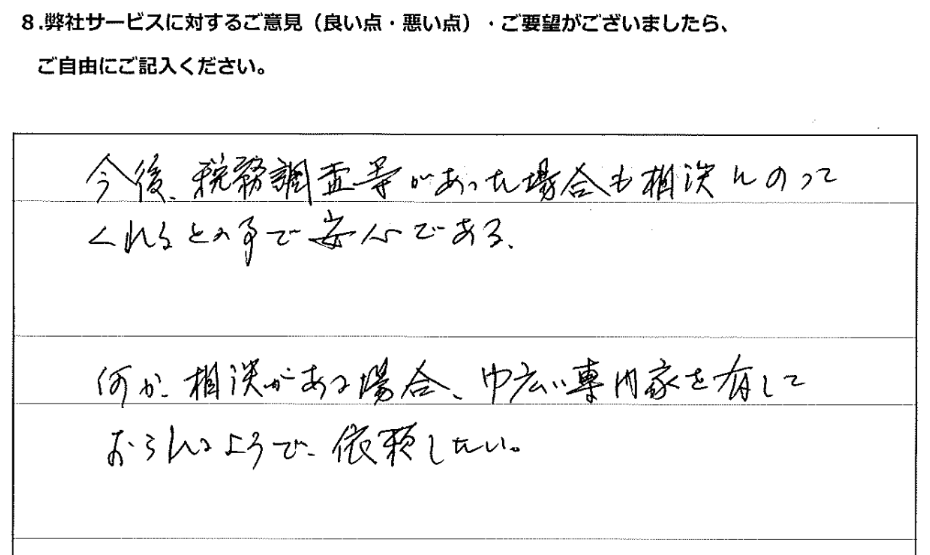 8.弊社サービスに対するご意見（良い点・悪い点）・ご要望がございましたら、
ご自由にご記入ください。
今後、税務調査等があった場合も相談にのって
くれるとの事で安心である。
何か、相談がある場合、巾広い専門家を有して
おられるようで、依頼したい。